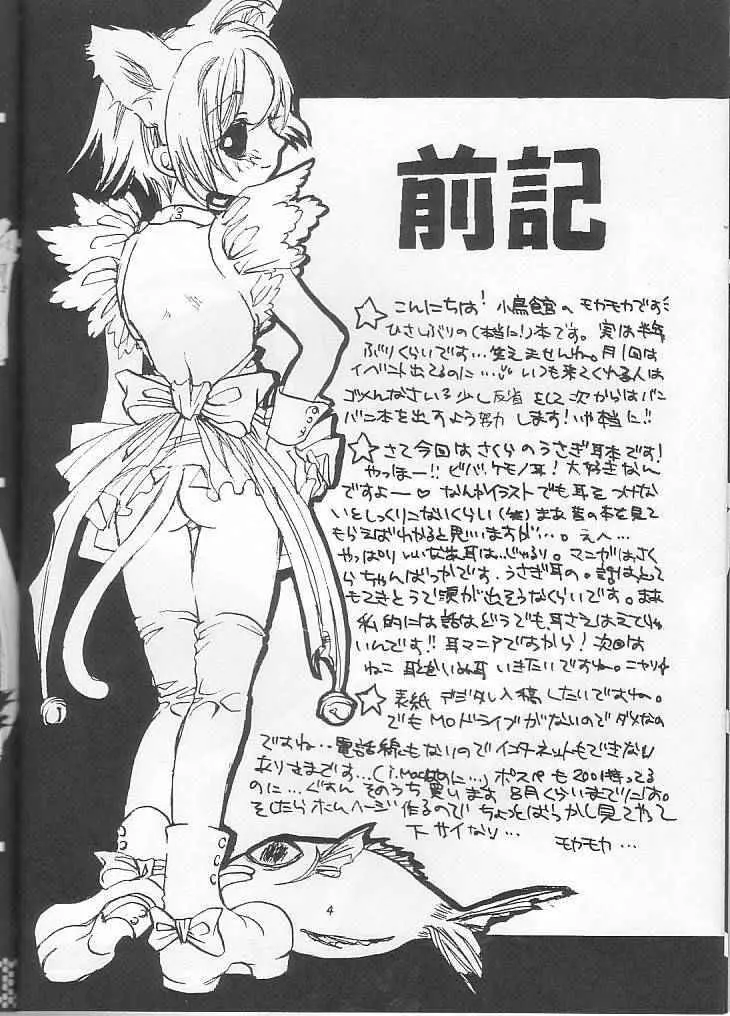 前記
☆こんにちは！小鳥館のモカモカです
ひさしぶりの(本当に！)本です。実は半年
ぶりくらいです…笑えませんね。月1回は
イベント出てるのに…いつも来てくれる人は
ゴメんなさい3少し反省をして次からはバン
バン本を出すよう努力します！いや本当に!!
☆さて今回はさくらのうさぎ耳本です！
やっほー!!ビバ、ケモノ耳！大好きなん
ですよー♡なんかイラストでも耳をつけない
いとしっくりこないくらい(笑)まあ皆の本を見て
もらえばわかると思いますが…。えへ…
やっぱりいいなあ耳は…じゅるり。マンガはさく
らちゃんばっかです。うさぎ耳の。話はとて
もてきとうで涙が出そうなくらいです。まあ
私的には話はどうでも、耳さえはえてりゃ
いんです!!耳マニアですから！次回は
ねこ耳とかいぬ耳いきたいですね。ニヤリ
☆表紙デジタル入稿したいですね。
でもMOドライブがないのでダメなの
ですね…電話線もないのでインターネットもできない
ありさまです…(i.Macなのに…)ポスペも2001持ってる
のに…ぐすんそのうち買います8月くらいまでには。
そしたらホームページ作るのでちょっとばっかし見てやって
下サイなり…
モカモカ…
4